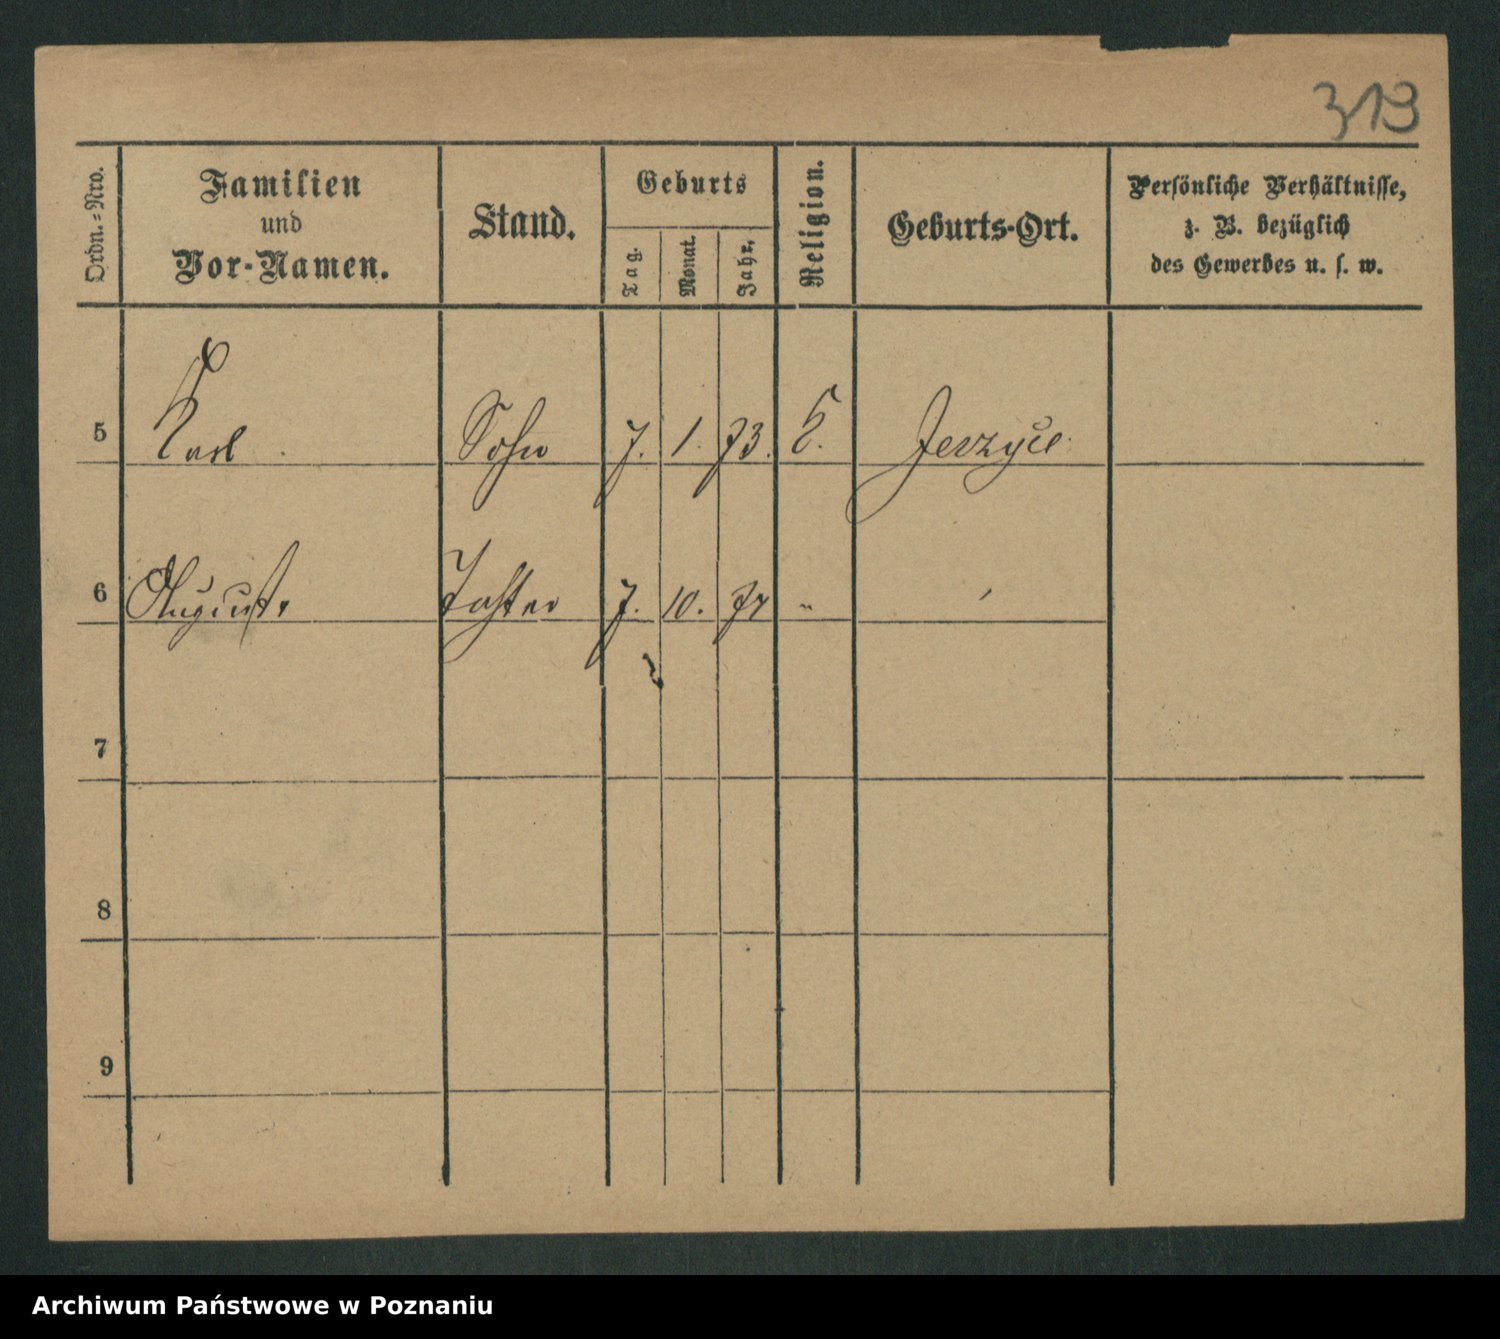 313
Ordn.=Nro.
Familien
und
Vor-Namen.
Stand.
Geburts
Tag.
Monat.
Jahr.
Religion.
Geburts-Ort.
Persönliche Verhältnisse,
z. B. bezüglich
des Gewerbes u. s. w.
5 Karl Sohn 7. 1. 73.
6 August. 7. 10. "
7
8
9
Archiwum Państwowe w Poznaniu